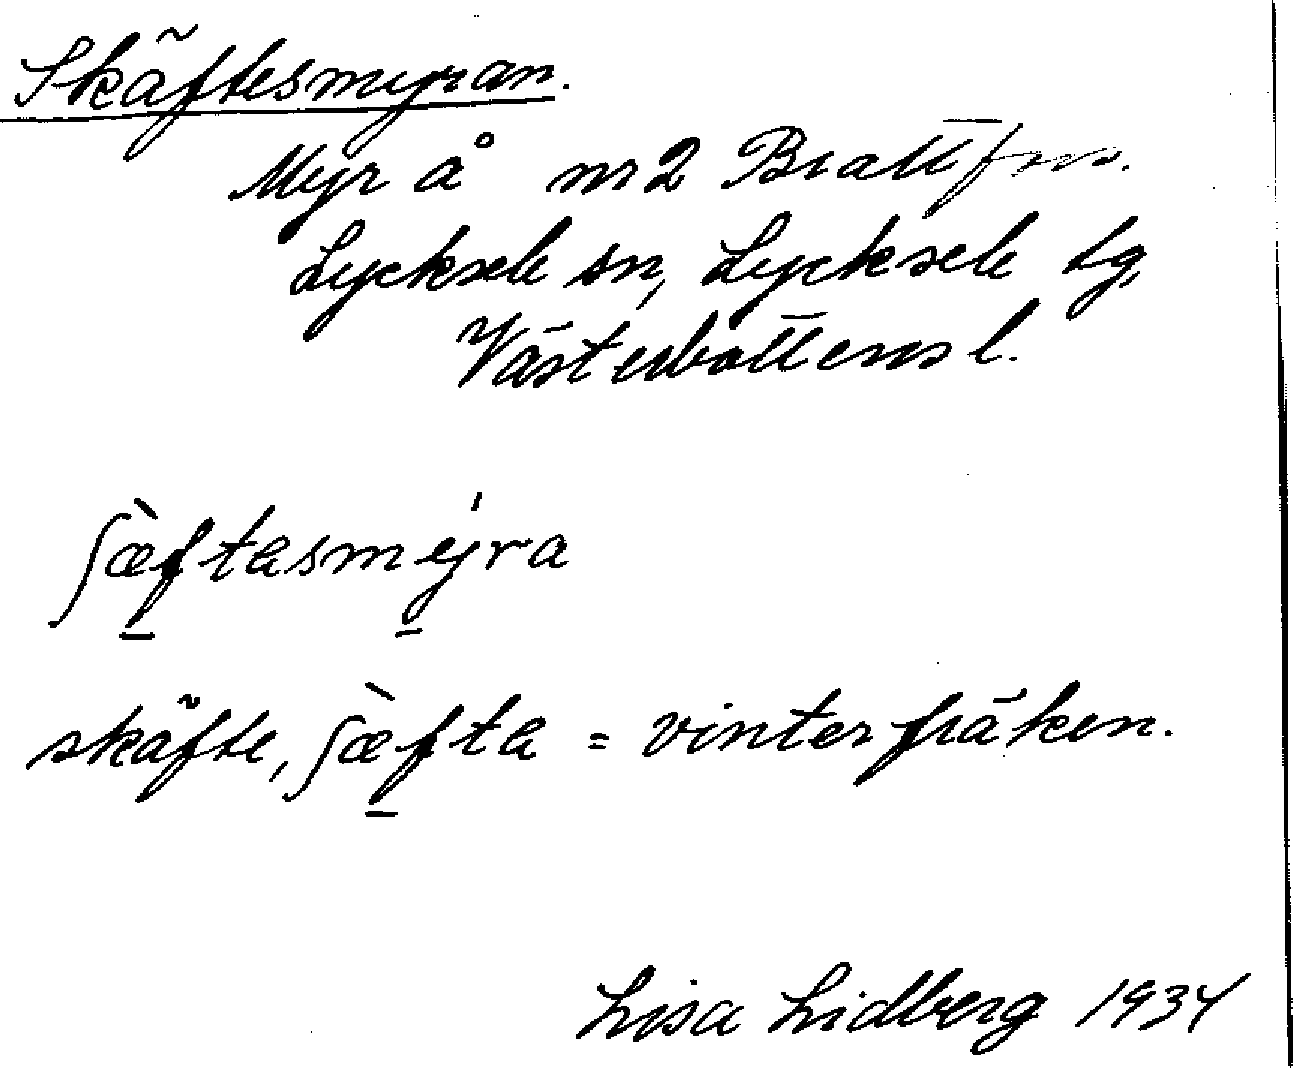 Skäftesmyran.
Myr å nr 2 Brattfors.
Lycksele sn, Lycksele tg,
Västerbottens l.
ʃæ̀ftasmýra
skäfte, ʃæ̀fta = vinterfräken.
Lisa Lidberg 1934